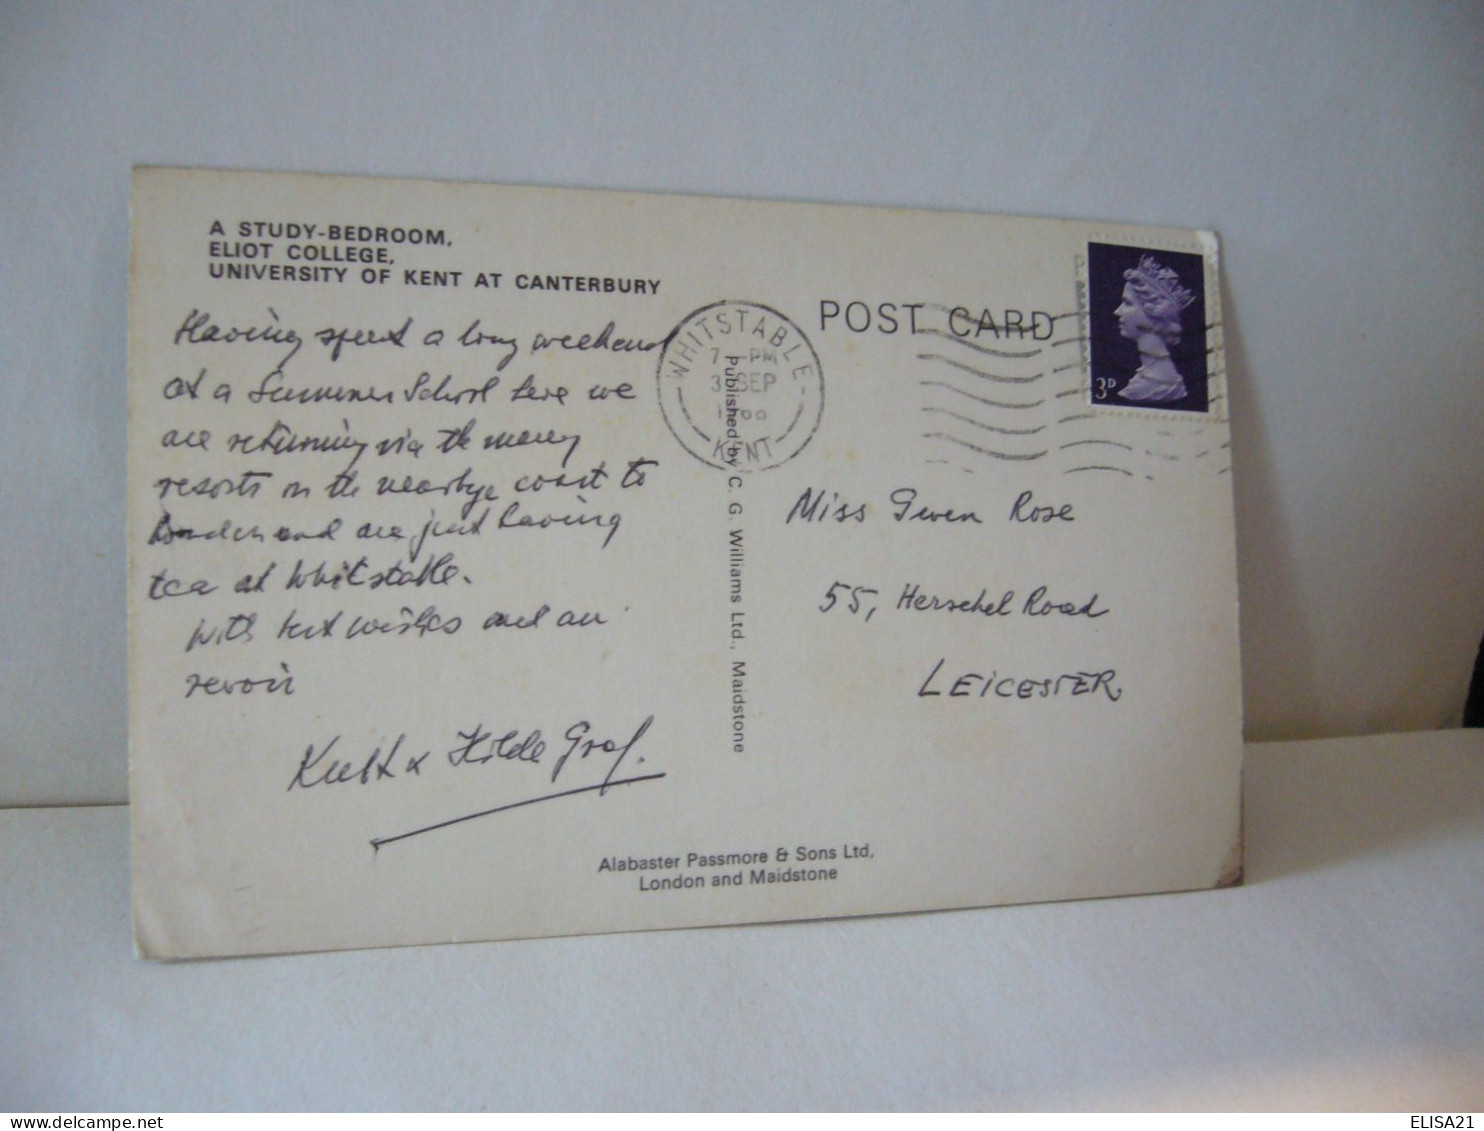 A STUDY-BEDROOM,
ELIOT COLLEGE,
UNIVERSITY OF KENT AT CANTERBURY
Having spent a long weekend
at a Summer School here we
are returning via the many
resorts on the nearbye coast to
London and are just having
tea at Whitstable.
With best wishes and au
revoir
Kurt & Hilde Graf.
WHITSTABLE
7 - PM
3 SEP
KENT
Published by C. G. Williams Ltd., Maidstone
POST CARD
3D
Miss Gwen Rose
55, Herschel Road
LEICESTER
Alabaster Passmore & Sons Ltd,
London and Maidstone
ELISA21